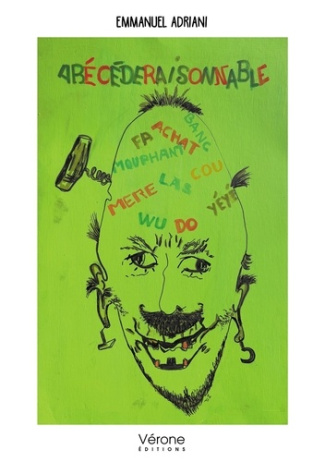 EMMANUEL ADRIANI
ABÉCÉDERAISONNABLE
BANG
ACHAT
FA
MOUPHANT
COU
LAS
MERE
YÉYÉ
WU
DO
Vérone
ÉDITIONS